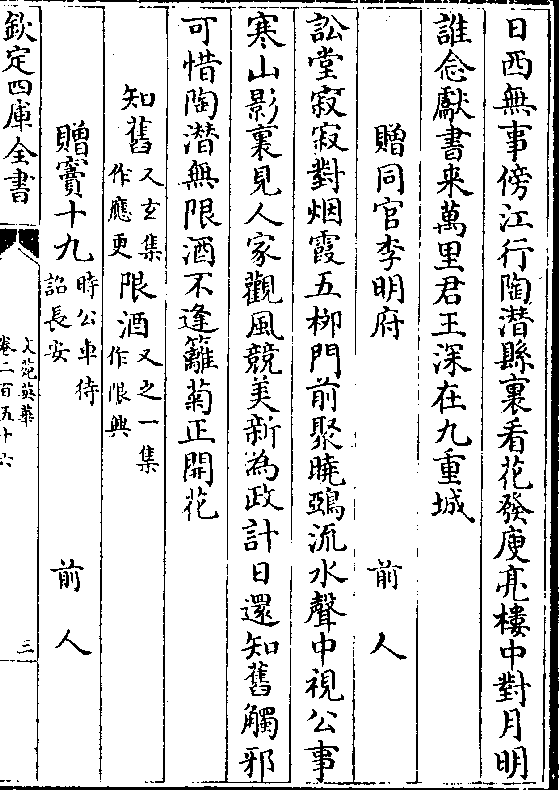 日西無事傍江行陶潜縣裏看花發庾亮樓中對月明
誰念獻書来萬里君王深在九重城
贈同官李明府 前人
訟堂寂寂對烟霞五栁門前聚曉鵶流水聲中視公事
寒山影裏見人家觀風競美新為政計日還知舊觸邪
可惜陶潜無限酒不逢籬菊正開花
知舊又玄集作應更限酒又之一集作限興
贈竇十九時公車待詔長安 前人
欽定四庫全書
文苑英華
卷二百五十六
三